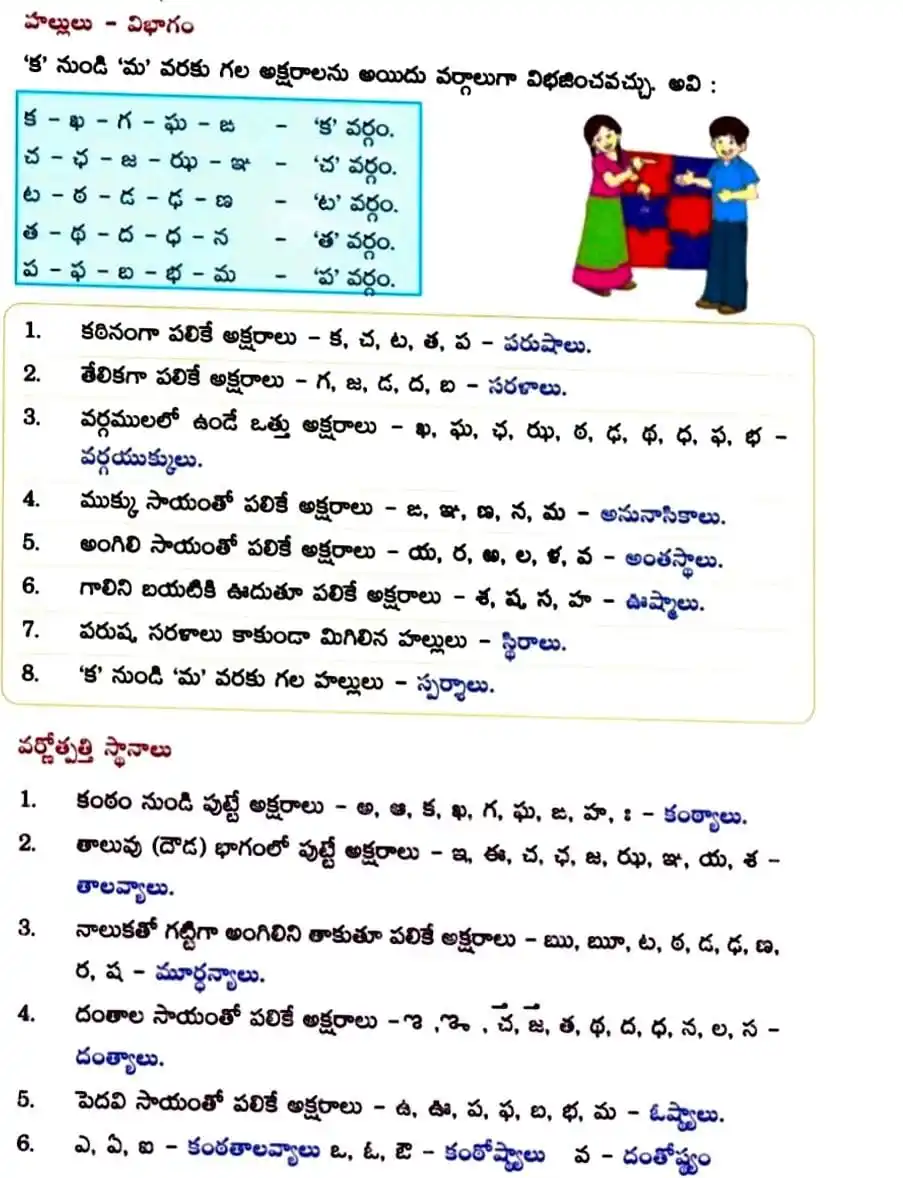 హల్లులు - విభాగం
‘క’ నుండి ‘మ’ వరకు గల అక్షరాలను అయిదు వర్గాలుగా విభజించవచ్చు. అవి :
క - ఖ - గ - ఘ - ఙ - ‘క’ వర్గం.
చ - ఛ - జ - ఝ - ఞ - ‘చ’ వర్గం.
ట - ఠ - డ - ఢ - ణ - ‘ట’ వర్గం.
త - థ - ద - ధ - న - ‘త’ వర్గం.
ప - ఫ - బ - భ - మ - ‘ప’ వర్గం.
1. కఠినంగా పలికే అక్షరాలు - క, చ, ట, త, ప - పరుషాలు.
2. తేలికగా పలికే అక్షరాలు - గ, జ, డ, ద, బ - సరళాలు.
3. వర్గములలో ఉండే ఒత్తు అక్షరాలు - ఖ, ఘ, ఛ, ఝ, ఠ, ఢ, థ, ధ, ఫ, భ -
వర్గయుక్కులు.
4. ముక్కు సాయంతో పలికే అక్షరాలు - ఙ, ఞ, ణ, న, మ - అనునాసికాలు.
5. అంగిలి సాయంతో పలికే అక్షరాలు - య, ర, ఱ, ల, ళ, వ - అంతస్థాలు.
6. గాలిని బయటికి ఊదుతూ పలికే అక్షరాలు - శ, ష, స, హ - ఊష్మాలు.
7. పరుష, సరళాలు కాకుండా మిగిలిన హల్లులు - స్థిరాలు.
8. ‘క’ నుండి ‘మ’ వరకు గల హల్లులు - స్పర్శాలు.
వర్ణోత్పత్తి స్థానాలు
1. కంఠం నుండి పుట్టే అక్షరాలు - అ, ఆ, క, ఖ, గ, ఘ, ఙ, హ, ః - కంఠ్యాలు.
2. తాలువు (దౌడ) భాగంలో పుట్టే అక్షరాలు - ఇ, ఈ, చ, ఛ, జ, ఝ, ఞ, య, శ -
తాలవ్యాలు.
3. నాలుకతో గట్టిగా అంగిలిని తాకుతూ పలికే అక్షరాలు - ఋ, ౠ, ట, ఠ, డ, ఢ, ణ,
ర, ష - మూర్ధన్యాలు.
4. దంతాల సాయంతో పలికే అక్షరాలు - ఌ , ౡ , ౘ, ౙ, త, థ, ద, ధ, న, ల, స -
దంత్యాలు.
5. పెదవి సాయంతో పలికే అక్షరాలు - ఉ, ఊ, ప, ఫ, బ, భ, మ - ఓష్ఠ్యాలు.
6. ఎ, ఏ, ఐ - కంఠతాలవ్యాలు ఒ, ఓ, ఔ - కంఠోష్ఠ్యాలు వ - దంతోష్ఠ్యం